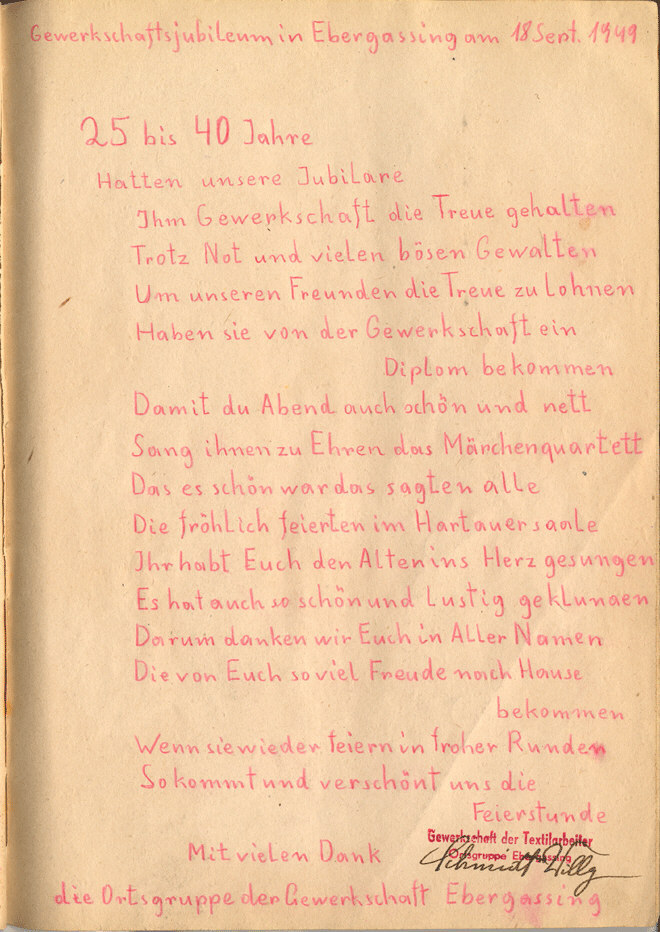 Gewerkschaftsjubileum in Ebergassing am 18 Sept. 1949
25 bis 40 Jahre
Hatten unsere Jubilare
Ihm Gewerkschaft die Treue gehalten
Trotz Not und vielen bösen Gewalten
Um unseren Freunden die Treue zu Lohnen
Haben sie von der Gewerkschaft ein
Diplom bekommen
Damit du Abend auch schön und nett
Sang ihnen zu Ehren das Märchenquartett
Das es schön war das sagten alle
Die fröhlich feierten im Hartauersaale
Ihr habt Euch den Alten ins Herz gesungen
Es hat auch so schön und Lustig geklungen
Darum danken wir Euch in Aller Namen
Die von Euch so viel Freude nach Hause
bekommen
Wenn sie wieder feiern in froher Runden
So kommt und verschönt uns die
Feierstunde
Gewerkschaft der Textilarbeiter
Ortsgruppe Ebergassing
Schmidt Willy
Mit vielen Dank
die Ortsgruppe der Gewerkschaft Ebergassing